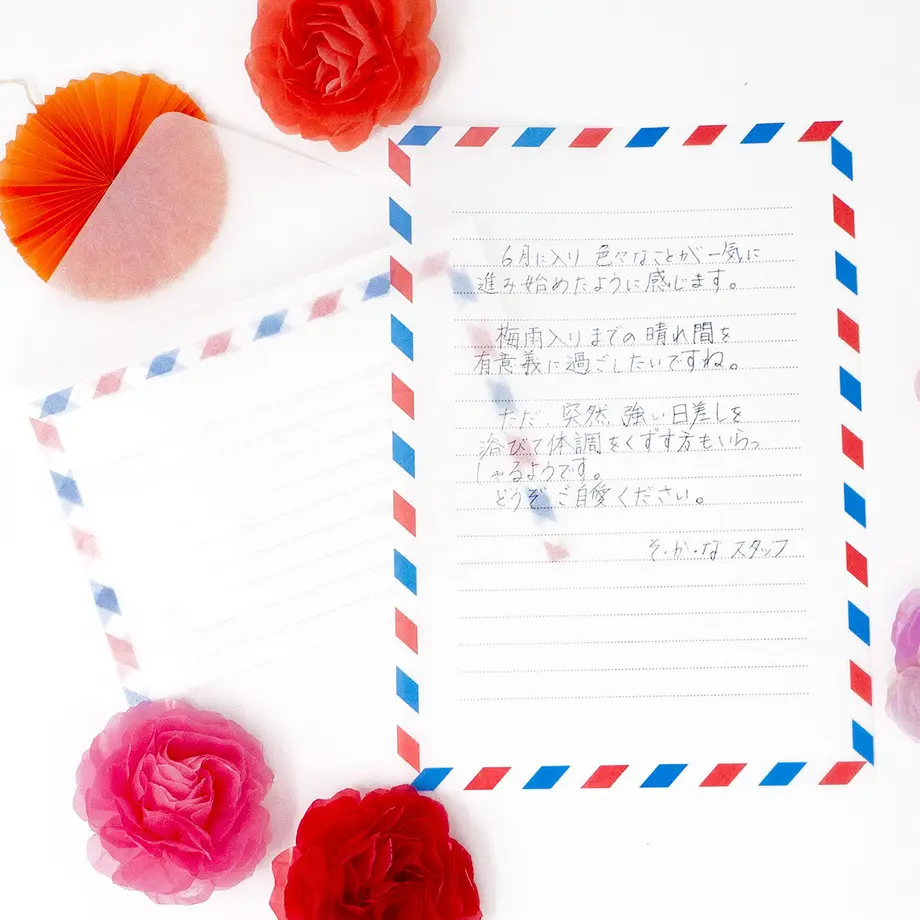 6月に入り 色々なことが一気に
進み始めたように感じます。
梅雨入りまでの晴れ間を
有意義に過ごしたいですね。
ただ、突然、強い日差しを
浴びて体調をくずす方もいらっ
しゃるようです。
どうぞご自愛ください。
そ・か・な スタッフ